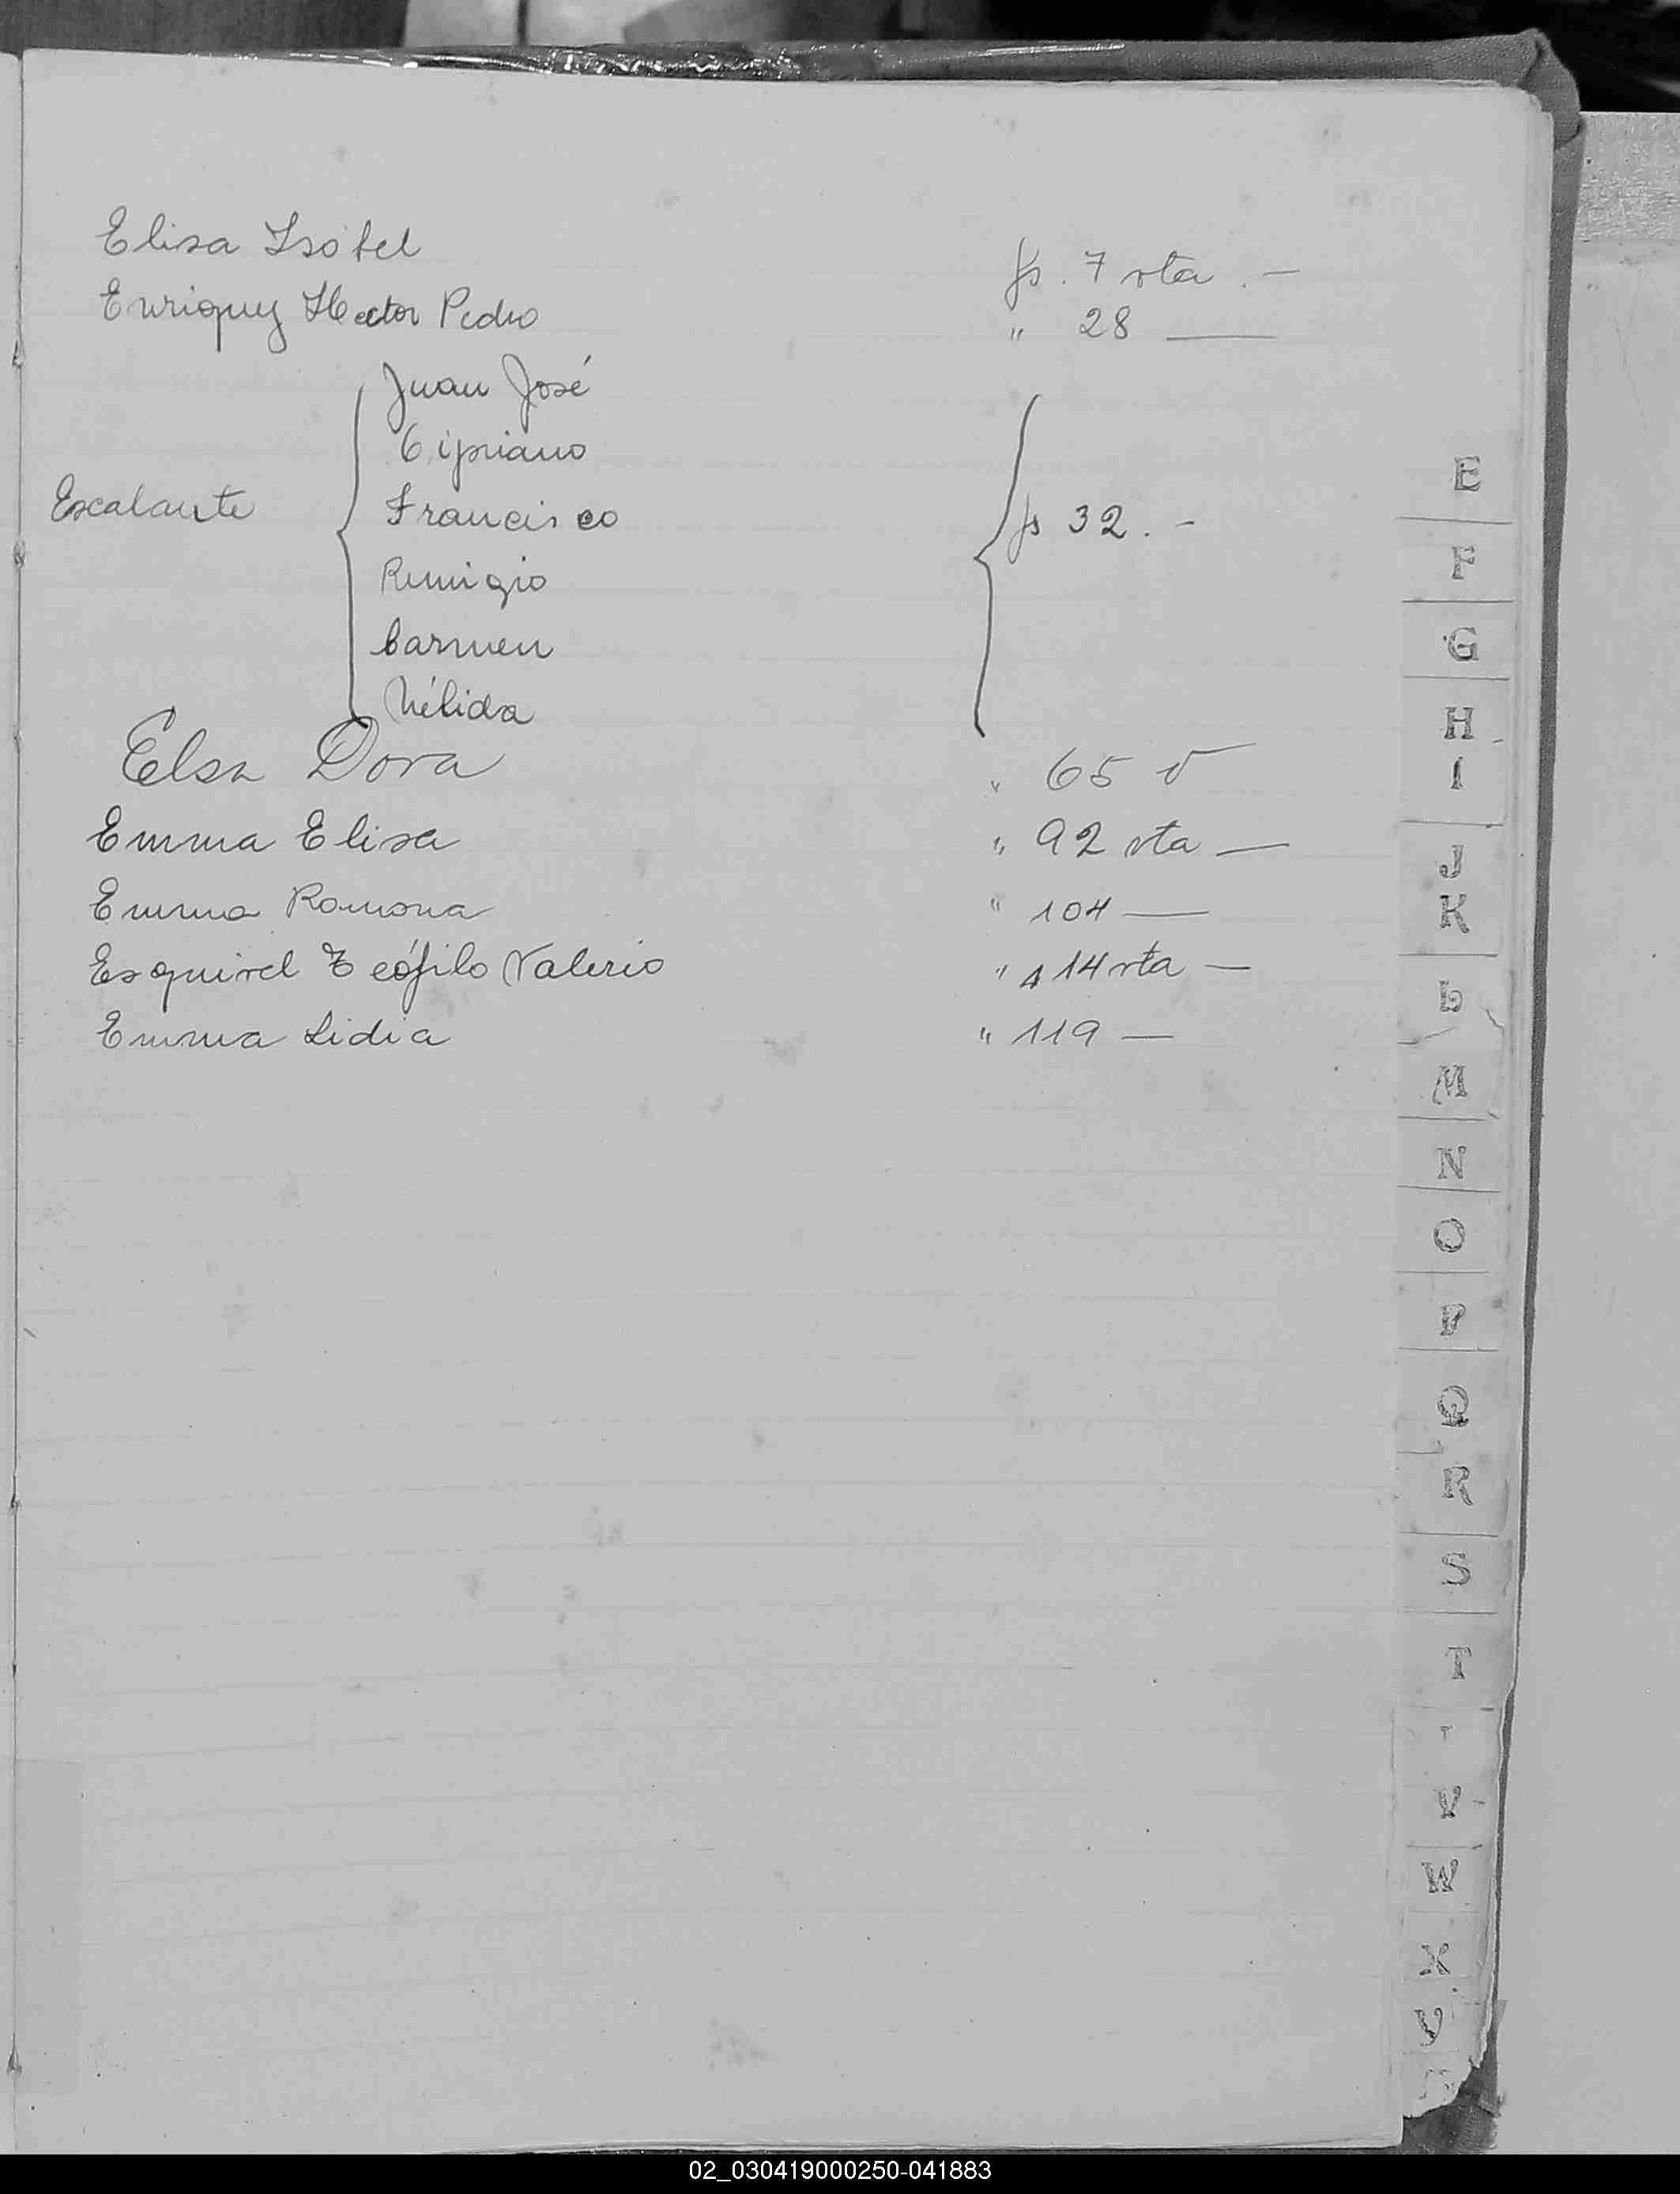 Elisa Isabel fs. 7 vta. —
Enriquez Hector Pedro " 28 —
Juan José
Cipriano
Escalante Francisco fs 32. -
Remigio
Carmen
Nélida
Elsa Dora " 65 v
Emma Elisa " 92 vta —
Emma Ramona " 104 —
Esquivel Teófilo Valerio " 114 vta —
Emma Lidia " 119 —
E
F
G
H
I
J
K
L
M
N
O
P
Q
R
S
T
V
W
X
02_030419000250-041883